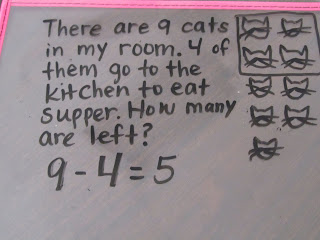 There are 9 cats
in my room. 4 of
them go to the
kitchen to eat
supper. How many
are left?
9-4=5